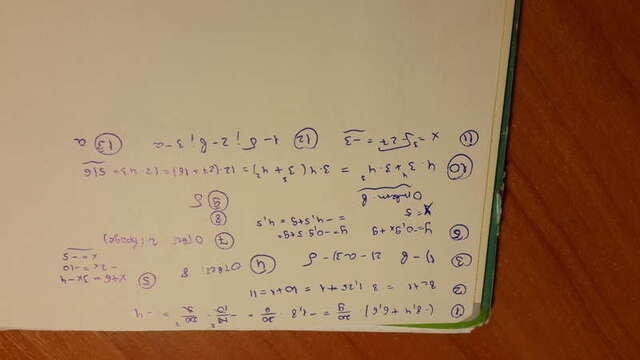 ① (-8,4 + 6,6) · 20/9 = -1,8 · 20/9 = -18/10 · 20/9 = -4
② 8a+1 = 8 · 1,25 + 1 = 10+1 = 11
③ 1) - в 2) - а 3) - б
④ Ответ: 8
⑤ x+6 = 3x-4
-2x = -10
x = -5
⑥ y = -0,9x+9 y = -0,9·5+9 =
x = 5 = -4,5+9 = 4,5
Ответ в
⑦ Ответ 2 (вроде)
⑧
⑨ б
⑩ 4·3⁴+3·4³ = 3·4(3³+4²) = 12(27+16) = 12·43 = 516
⑪ x = ³√-27 = -3
⑫ 1-б; 2-в; 3-а
⑬ а